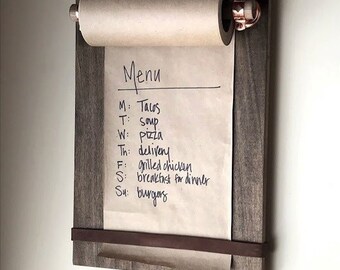 Menu
M: Tacos
T: soup
W: pizza
Th: delivery
F: grilled chicken
S: breakfast for dinner
Su: burgers